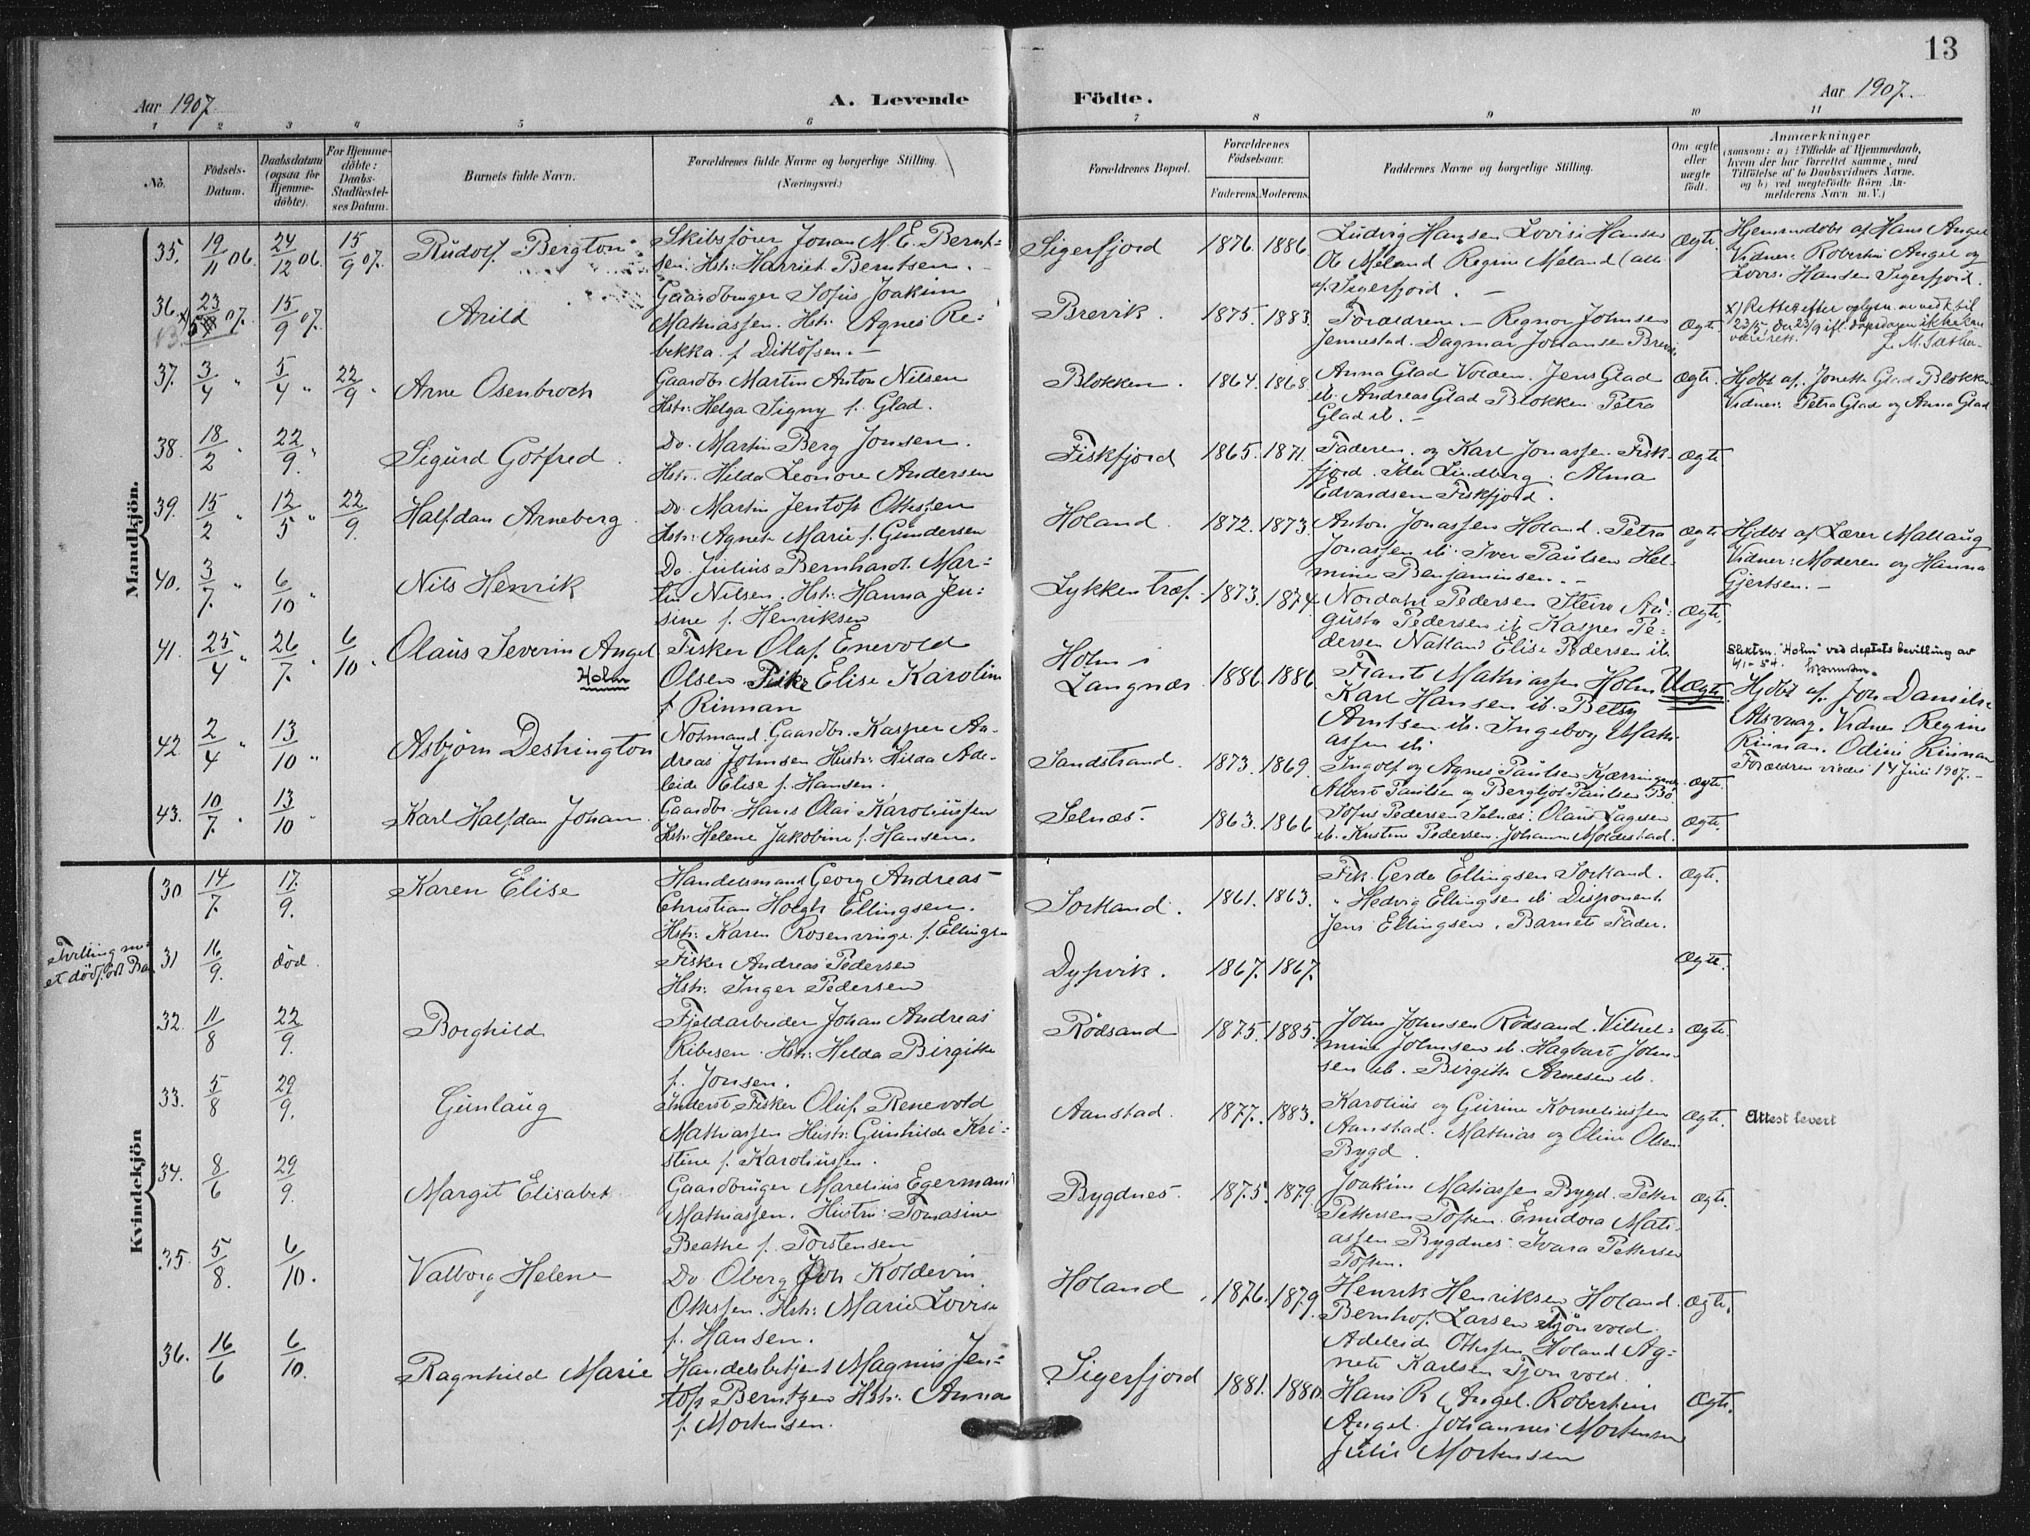 13
Aar 1907.
A. Levende Födte.
Aar 1907.
1 2 3 4 5 6 7 8 9 10 11
No.
Födsels-Datum.
Daabsdatum (ogsaa for Hjemme-döbte).
For Hjemme-döbte: Daabs-Stadfæstel-ses Datum.
Barnets fulde Navn.
Forældrenes fulde Navne og borgerlige Stilling.
(Næringsvei.)
Forældrenes Bopæl.
Forældrenes Födselsaar.
Faderens. Moderens.
Faddernes Navne og borgerlige Stilling.
Om ægte eller uægte födt.
Anmærkninger
(saasom: a) i Tilfælde af Hjemmedaab,
hvem der har forrettet samme, med
Tilföielse af to Daabsvidners Navne,
og b) ved uægtefödte Börn An-
melderens Navn m. V.)
Mandkjön.
35. 19/11 06. 24/12 06. 15/9 07. Rudolf Bergton
Skibsfører Johan M. E. Bernt-
sen. Hstr: Harriet Berntsen.
Sigerfjord 1876. 1886
Ludvig Hansen Lovise Hansen
Ole Meland Regine Meland (alle
af Sigerfjord.
Ægte.
Hjemmedøbt af Hans Angel
Vidner: Robertine Angel og
Lovise Hansen Sigerfjord.
36. x) 23/5 07. 15/9 07. Arild
Gaardbruger Sofus Joakim
Mathiassen. Hstr. Agnes Re-
bekka f. Ditlofsen.
Brevik. 1875. 1883.
Forældrene. Regnor Johnsen
Jennestad. Dagmar Johansen Brevik
Ægte.
x) Rettet efter oplysn.
37. 3/4 " 5/4 " 22/9 " Arne Osenbroch
Gaardbr. Martin Anton Nilsen
Hstr: Helga Signy f. Glad.
Blokken. 1864. 1868.
Anna Glad Volden. Jens Glad
ib. Andreas Glad Blokken Petra
Glad ib.
Ægte.
Hjdbt af Jonette Glad Blokken
Vidner: Petra Glad og Anna Glad
38. 18/2 " 22/9 " Sigurd Gotfred.
Do. Martin Berg Jonsen.
Hstr. Hilda Leonore Andersen
Fiskfjord 1865. 1871.
Faderen og Karl Jonassen Fisk-
fjord. Ida Lindberg. Alma
Edvardsen Fiskfjord.
Ægte
39. 15/2 " 12/5 " 22/9. Halfdan Arneberg.
Do. Martin Jentoft Ottesen
Hstr: Agnete Marie f. Gundersen
Holand. 1872. 1873.
Anton Jonassen Holand. Petra
Jonassen ib. Iver Paulsen Hel-
mine Benjaminsen.
Ægte
Hjdbt af Lærer Maltaug
Vidner: Moderen og Hanna
Gjertsen.
40. 3/7. " 6/10 " Nils Henrik
Do. Julius Bernhard Mar-
tin Nilsen. Hstr: Hanna Jen-
sine f. Henriksen
Lykkentræf. 1873. 1874.
Nordahl Pedersen Steiro Au-
gusta Pedersen ib. Kasper Pe-
dersen Natland Elise Pedersen ib.
Ægte.
41. 25/4 " 26/7. " 6/10. Olaus Severin Angel
Holm
Fisker Olaf Enevold
Olsen. Pike Elise Karoline
f Rinnan
Holm i
Langnæs 1886. 1886
Frants Mathiassen Holm
Karl Hansen ib. Betsy
Arntsen ib. Ingeborg Mathi-
assen ib.
Uægte.
Slektsn. "Holm" ved deptets bevilling av
4/1-54.
Hjdbt af Joh Daniels
Alsvaag. Vidner Regine
Rinnan. Odine Rinnan
Forældren viedes 14 Juli 1907.
42. 2/4 " 13/10 " Asbjørn Deshington
Notmand, Gaardbr. Kasper An-
dreas Johnsen Hustr: Hilda Ade-
leide Elise f. Hansen.
Sandstrand. 1873. 1869.
Ingolf og Agnes Paulsen Kjærringnes
Albert Paulsen og Bergljot Paulsen Bø
Ægte.
43. 10/7. " 13/10 " Karl Halfdan Johan.
Gaardbr. Hans Olai Karoliussen
Hstr: Helene Jakobine f. Hansen.
Selnæs. 1863. 1866
Sofus Pedersen Selnæs. Olaus Lagesen
ib. Kristine Pedersen. Johanna Moldestad.
Ægte.
Kvindekjön
30 14/7. 17/9. Karen Elise
Handelsmand Georg Andreas
Christian Holgt Ellingsen.
Hstr: Karen Rosenvinge f. Ellingsen
Sortland. 1861. 1863.
Frk. Gerda Ellingsen Sortland.
" Hedvig Ellingsen ib Disponent
Jens Ellingsen. Barnets Fader.
Ægte.
Tvilling m.
et dødf. ødt Barn
31 16/9. død.
Fisker Andreas Pedersen
Hstr: Inger Pedersen
Dypvik. 1867. 1867.
Ægte.
32. 11/8 22/9. Borghild
Fjeldarbeider Johan Andreas
Ribesen. Hstr: Hilda Birgitte
f. Jonsen.
Rødsand 1875. 1885.
John Johnsen Rødsand. Vilhel-
mine Johnsen ib. Hagbart John-
sen ib. Birgitte Arnesen ib.
Ægte.
33. 5/8 29/9. Gunlaug
Inderst Fisker Oluf Renevold
Mathiassen Hustr: Gunhilde Kri-
stine f. Karoliussen.
Aanstad. 1877. 1883.
Karolius og Gurine Korneliussen
Aanstad. Mathias og Oline Olsen
Bygd.
Ægte.
Attest levert
34. 8/6 29/9. Margit Elisabet
Gaardbruger Marelius Egermand
Mathiassen. Hustru: Tomasine
Beathe f. Torstensen
Bygdnes. 1875. 1879.
Joakim Matiassen Bygd. Petter
Pettersen Toften. Emidora Mati-
assen Bygdnes. Ivara Pettersen
Toften.
Ægte.
35. 5/8. 6/10. Valborg Helene
Do Oberg Joh Koldevin
Ottesen. Hstr: Marie Lovise
f. Hansen.
Holand 1876. 1879.
Henrik Henriksen Holand.
Bernhof Larsen Tjønvold.
Adeleide Ottesen Holand Ag-
nete Karlsen Tjonvold.
Ægte.
36. 16/6 6/10. Ragnhild Marie
Handelsbetjent Magnus Jen-
toft Berntzen Hstr: Anna
f. Mortensen.
Sigerfjord 1881. 1880.
Hans R Angel. Robertine
Angel. Johannes Mortensen
Julie Mortensen
Ægte.